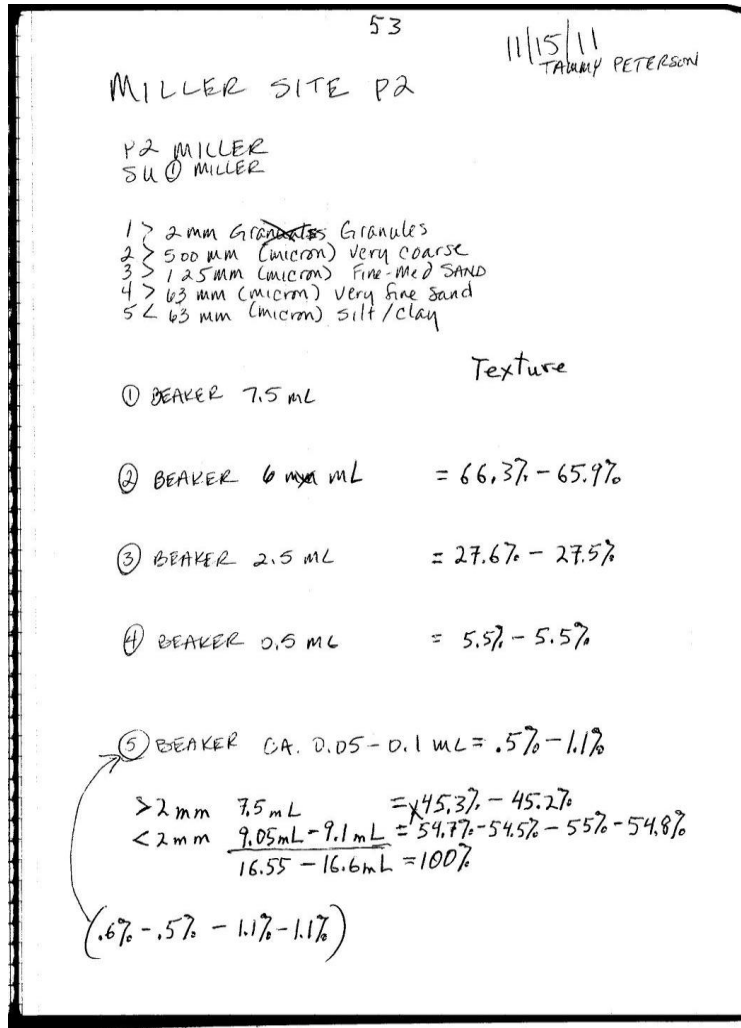 53
11/15/11
TAMMY PETERSON
MILLER SITE P2
P2 MILLER
SU ① MILLER
1 > 2mm Granules
2 > 500 mm (micron) very coarse
3 > 125mm (micron) Fine-med SAND
4 > 63 mm (micron) very fine sand
5 < 63 mm (micron) silt/clay
Texture
① BEAKER 7.5 mL
② BEAKER 6 mL = 66.3% - 65.9%
③ BEAKER 2.5 ML = 27.6% - 27.5%
④ BEAKER 0.5 ML = 5.5% - 5.5%
⑤ BEAKER CA. 0.05 - 0.1 mL = .5% - 1.1%
>2mm 7.5mL = 45.3% - 45.2%
<2mm 9.05mL - 9.1mL = 54.7% - 54.5% - 55% - 54.8%
16.55 - 16.6mL = 100%
(.6% - .5% - 1.1% - 1.1%)